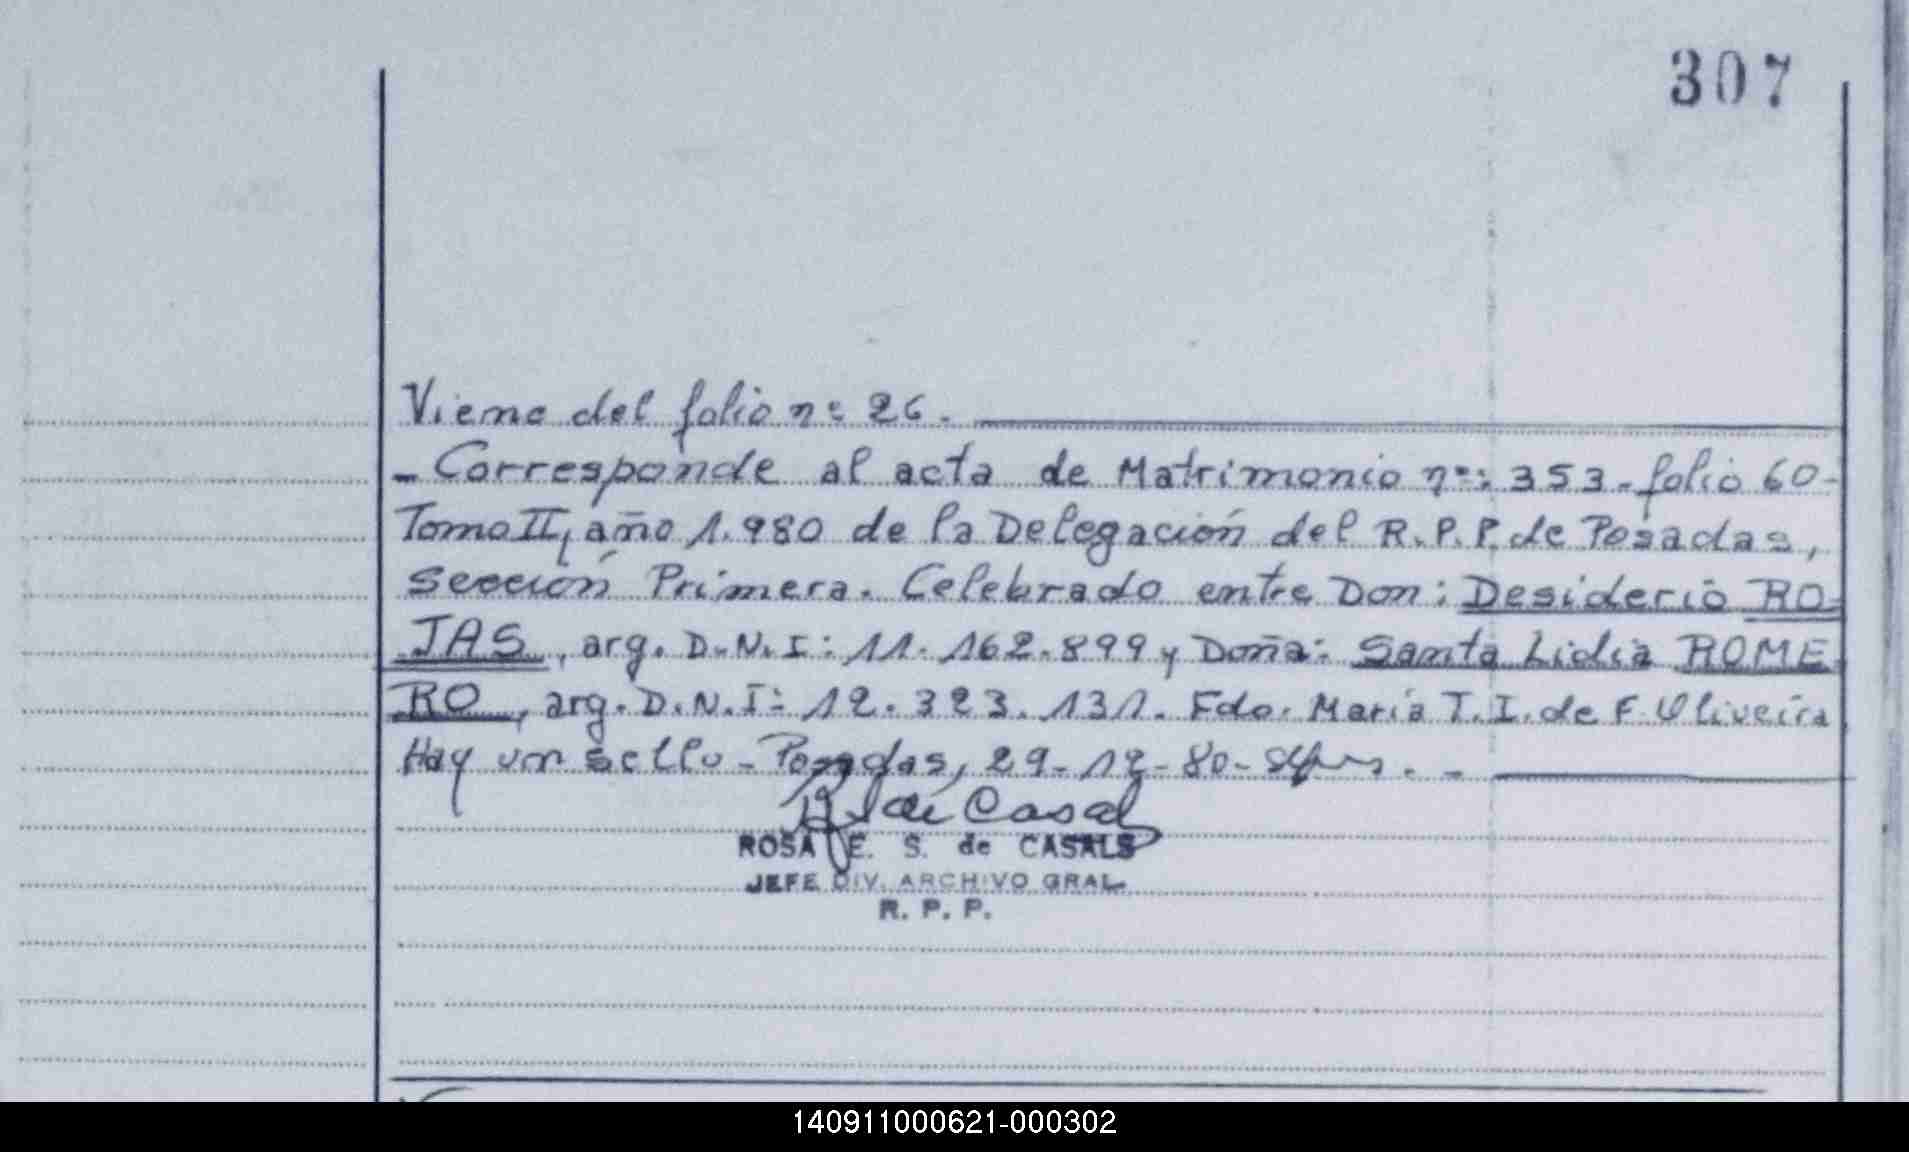 307
Viene del folio nº 26.
- Corresponde al acta de Matrimonio nº: 353 - folio 60 -
Tomo II, año 1.980 de la Delegación del R.P.P. de Posadas,
Sección Primera. Celebrado entre Don: Desiderio RO-
JAS, arg. D.N.I: 11.162.899 y Doña: Santa Lidia ROME-
RO, arg. D.N.I: 12.323.131. Fdo. María T. I. de F. Oliveira
Hay un sello - Posadas, 29-12-80-
R S de Casals
ROSA E. S. de CASALS
JEFE DIV. ARCHIVO GRAL.
R. P. P.
140911000621-000302